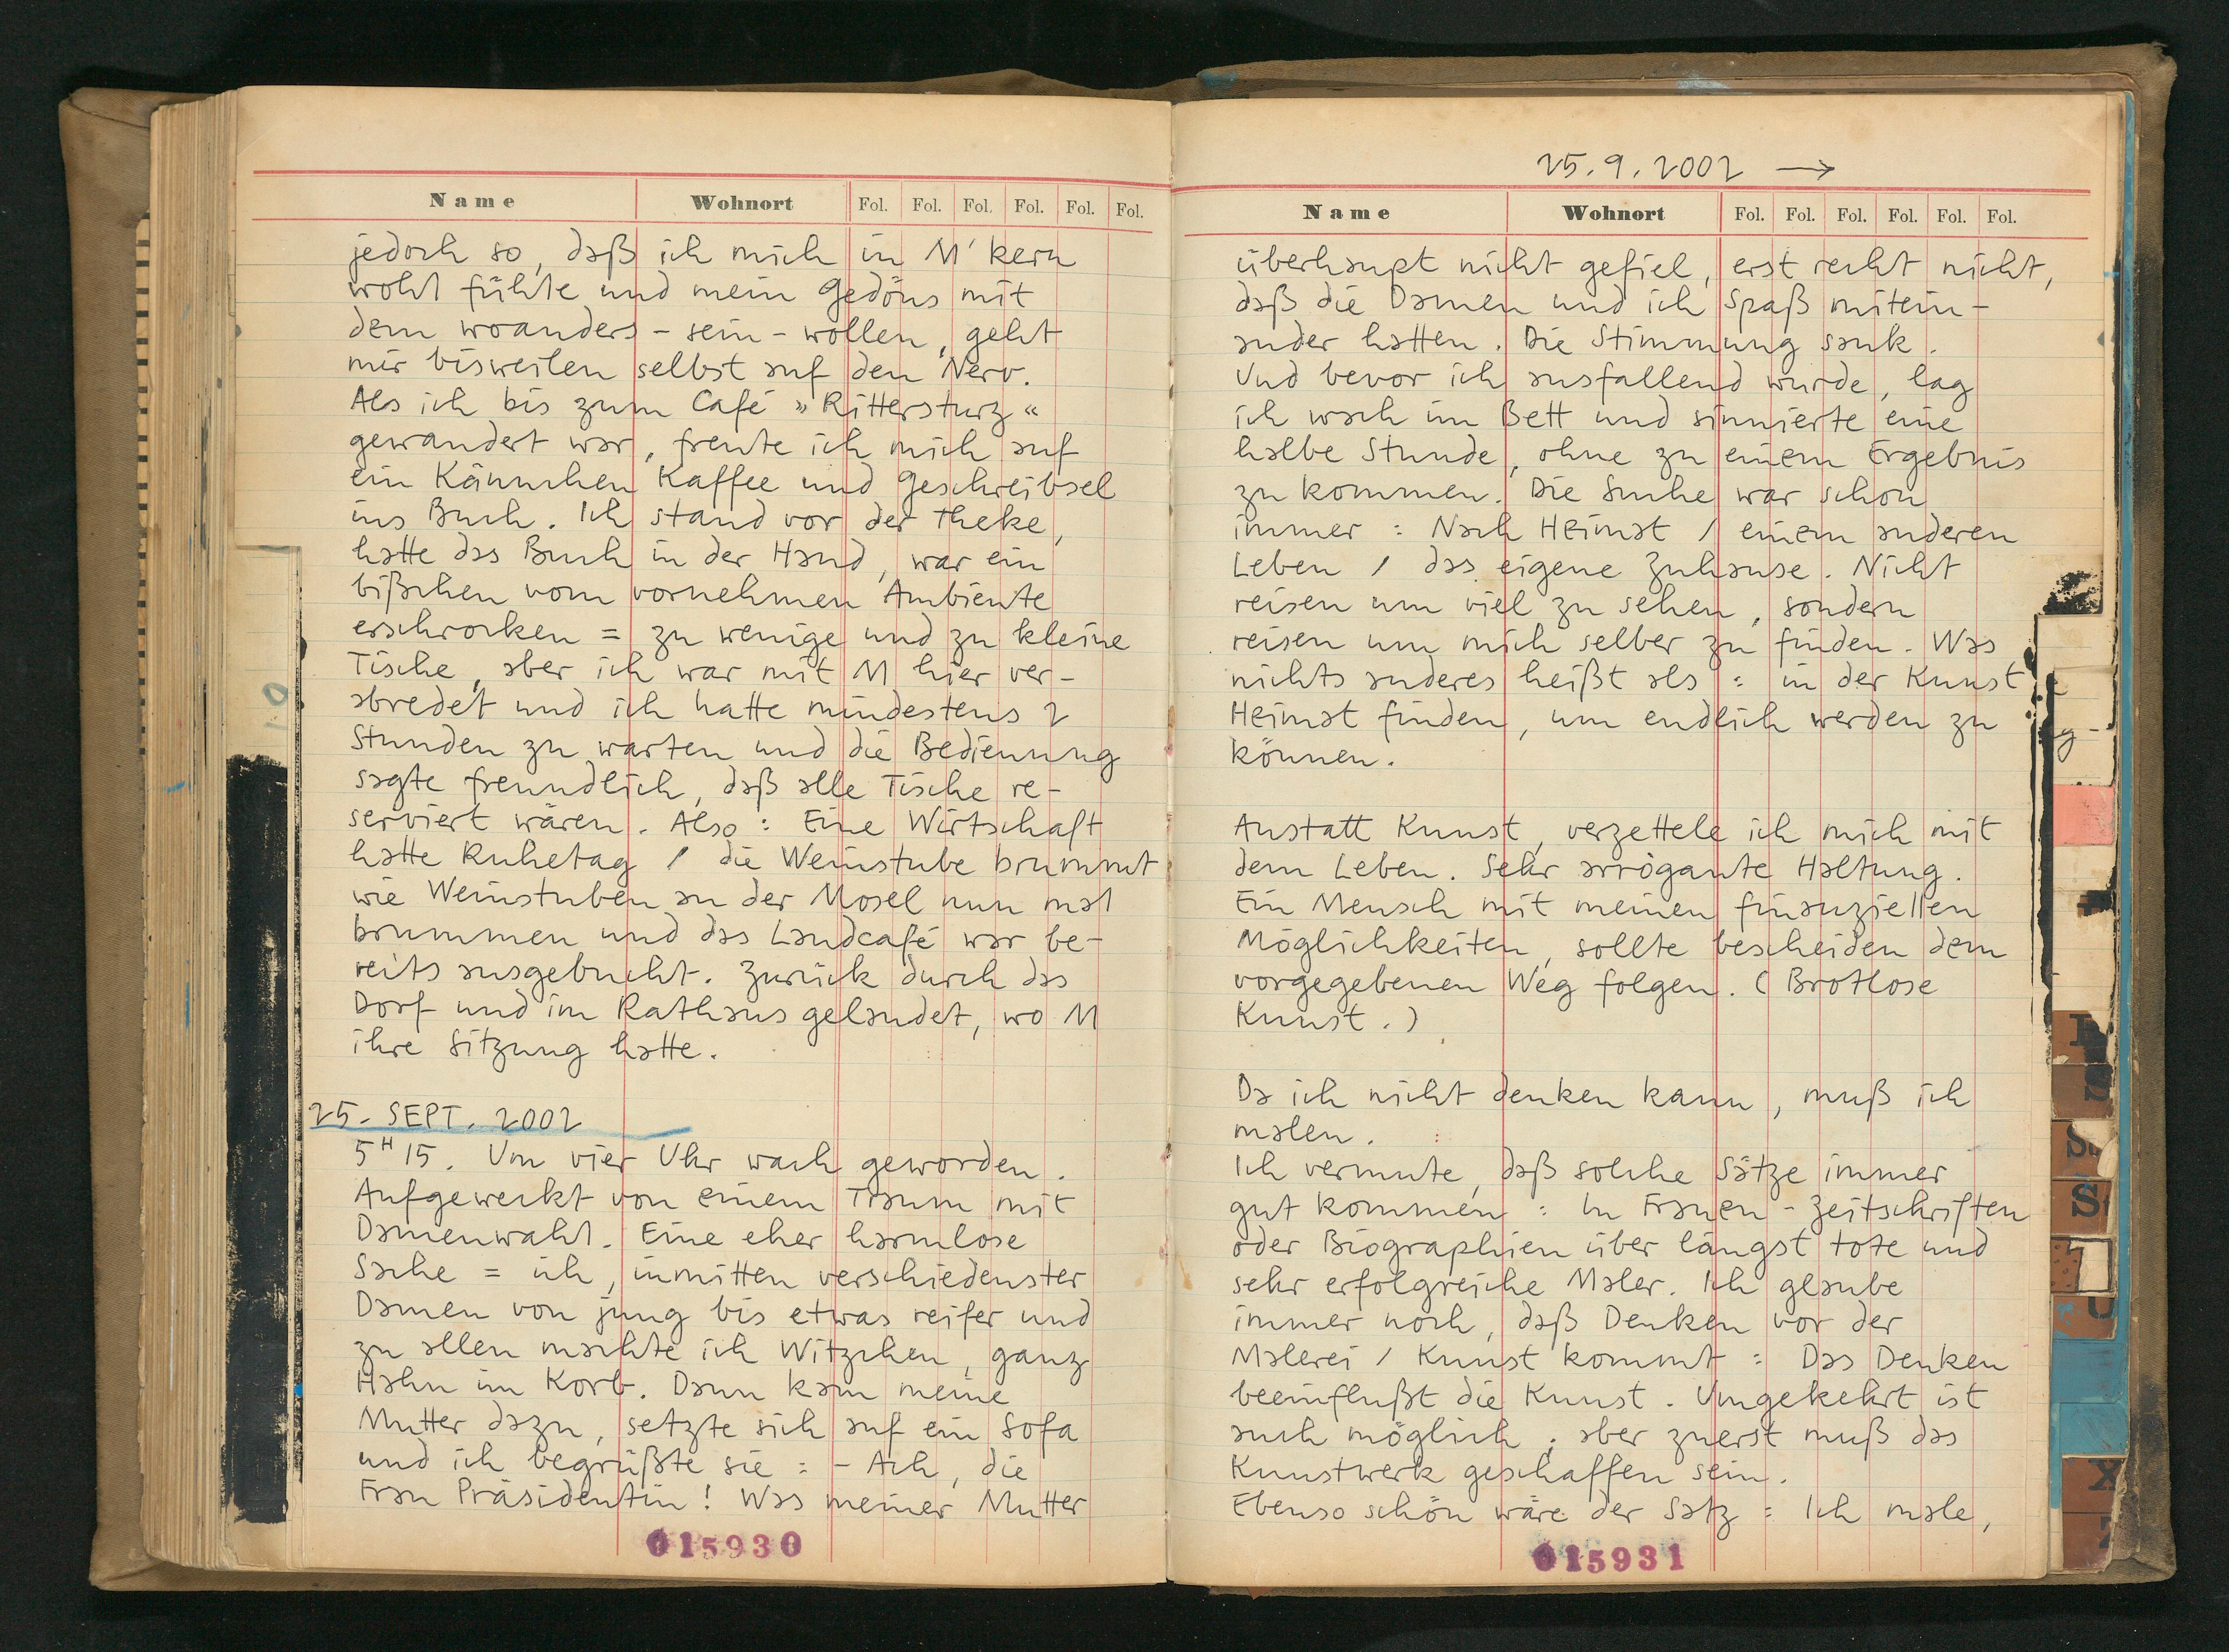 Name Wohnort Fol. Fol. Fol. Fol. Fol. Fol.
jedoch so, daß ich mich in M'kern
wohl fühlte und mein Gedöns mit
dem woanders-sein-wollen, geht
mir bisweilen selbst auf den Nerv.
Als ich bis zum Café »Rittersturz«
gewandert war, freute ich mich auf
ein Kännchen Kaffee und Geschreibsel
ins Buch. Ich stand vor der Theke,
hatte das Buch in der Hand, war ein
bißchen vom vornehmen Ambiente
erschrocken = zu wenige und zu kleine
Tische, aber ich war mit M hier ver-
abredet und ich hatte mindestens 2
Stunden zu warten und die Bedienung
sagte freundlich, daß alle Tische re-
serviert wären. Also: Eine Wirtschaft
hatte Ruhetag / die Weinstube brummt
wie Weinstuben an der Mosel nun mal
brummen und das Landcafé war be-
reits ausgebucht. Zurück durch das
Dorf und im Rathaus gelandet, wo M
ihre Sitzung hatte.
25. SEPT. 2002
5H15. Um vier Uhr wach geworden.
Aufgeweckt von einem Traum mit
Damenwahl. Eine eher harmlose
Sache = ich, inmitten verschiedenster
Damen von jung bis etwas reifer und
zu allen machte ich Witzchen, ganz
Hahn im Korb. Dann kam meine
Mutter dazu, setzte sich auf ein Sofa
und ich begrüßte sie: - Ach, die
Frau Präsidentin! Was meiner Mutter
015930
25.9.2002 →
Name Wohnort Fol. Fol. Fol. Fol. Fol. Fol.
überhaupt nicht gefiel, erst recht nicht,
daß die Damen und ich Spaß mitein-
ander hatten. Die Stimmung sank.
Und bevor ich ausfallend wurde, lag
ich wach im Bett und sinnierte eine
halbe Stunde, ohne zu einem Ergebnis
zu kommen. Die Suche war schon
immer: Nach Heimat / einem anderen
Leben / das eigene Zuhause. Nicht
reisen um viel zu sehen, sondern
reisen um mich selber zu finden. Was
nichts anderes heißt als: in der Kunst
Heimat finden, um endlich werden zu
können.
Anstatt Kunst, verzettele ich mich mit
dem Leben. Sehr arrogante Haltung.
Ein Mensch mit meinen finanziellen
Möglichkeiten, sollte bescheiden dem
vorgegebenen Weg folgen. (Brotlose
Kunst.)
Da ich nicht denken kann, muß ich
malen.
Ich vermute, daß solche Sätze immer
gut kommen: In Frauen-Zeitschriften
oder Biographien über längst tote und
sehr erfolgreiche Maler. Ich glaube
immer noch, daß Denken vor der
Malerei / Kunst kommt: Das Denken
beeinflußt die Kunst. Umgekehrt ist
auch möglich, aber zuerst muß das
Kunstwerk geschaffen sein.
Ebenso schön wäre der Satz: Ich male,
015931